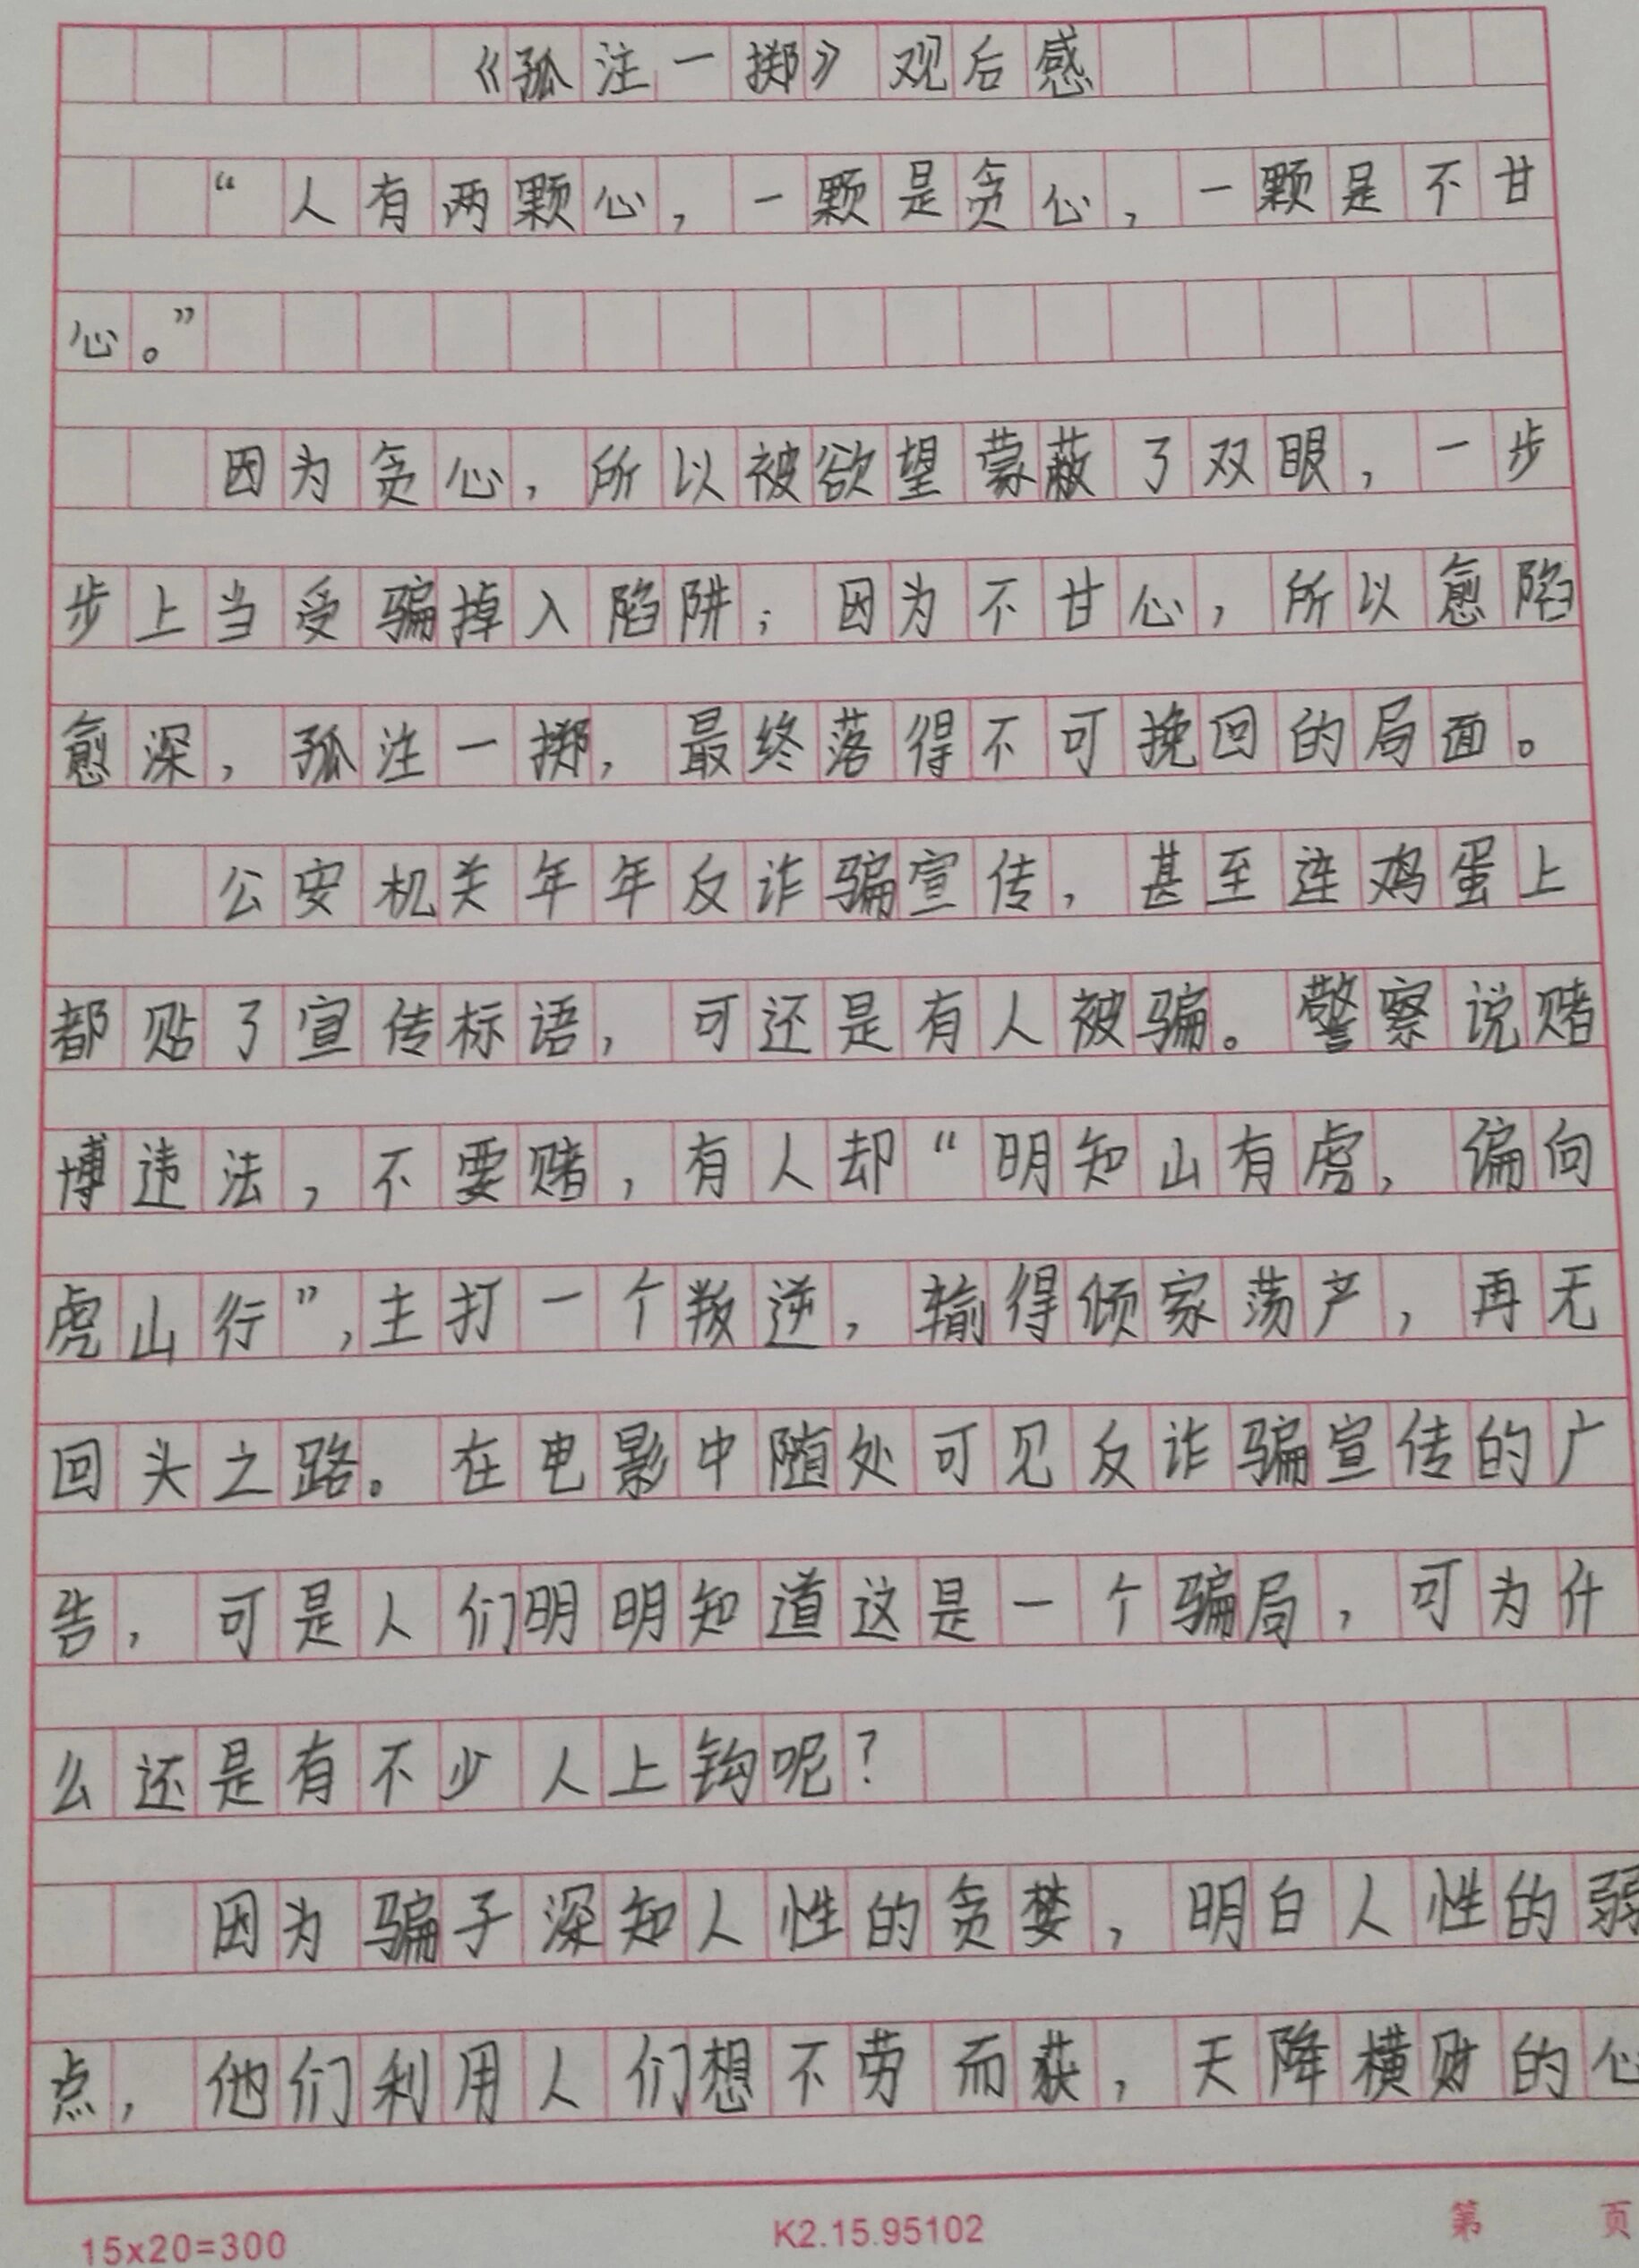 《孤注一掷》观后感
“人有两颗心，一颗是贪心，一颗是不甘
心。”
因为贪心，所以被欲望蒙蔽了双眼，一步
步上当受骗掉入陷阱；因为不甘心，所以愈陷
愈深，孤注一掷，最终落得不可挽回的局面。
公安机关年年反诈骗宣传，甚至连鸡蛋上
都贴了宣传标语，可还是有人被骗。警察说赌
博违法，不要赌，有人却“明知山有虎，偏向
虎山行”，主打一个叛逆，输得倾家荡产，再无
回头之路。在电影中随处可见反诈骗宣传的广
告，可是人们明明知道这是一个骗局，可为什
么还是有不少人上钩呢？
因为骗子深知人性的贪婪，明白人性的弱
点，他们利用人们想不劳而获，天降横财的心
15x20=300
K2.15.95102
第 页